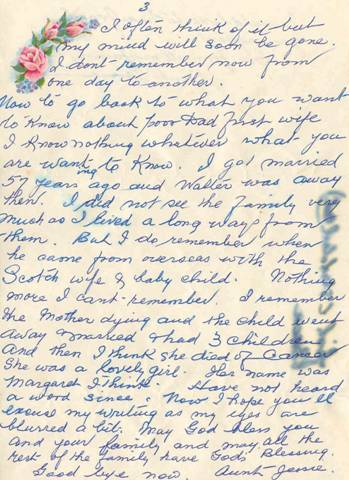 3
I often think of it but
my mind will soon be gone.
I don't remember now from
one day to another.
Now to go back to what you want
to know about poor Dad first wife
I know nothing whatever what you
are wanting to know. I got married
57 years ago and Walter was away
then. I did not see the family very
much as I lived a long ways from
them. But I do remember when
he came from overseas with the
Scotch wife & baby child. Nothing
more I can't remember. I remember
the Mother dying and the child went
away married & had 3 children
And then I think she died of Cancer
She was a lovely girl. Her name was
Margaret I think. Have not heard
a word since. Now I hope you'll
excuse my writing as my eyes are
blurred a bit. May God bless you
and your family and may all the
rest of the family have Gods Blessing.
Good bye now. Aunt Jessie.